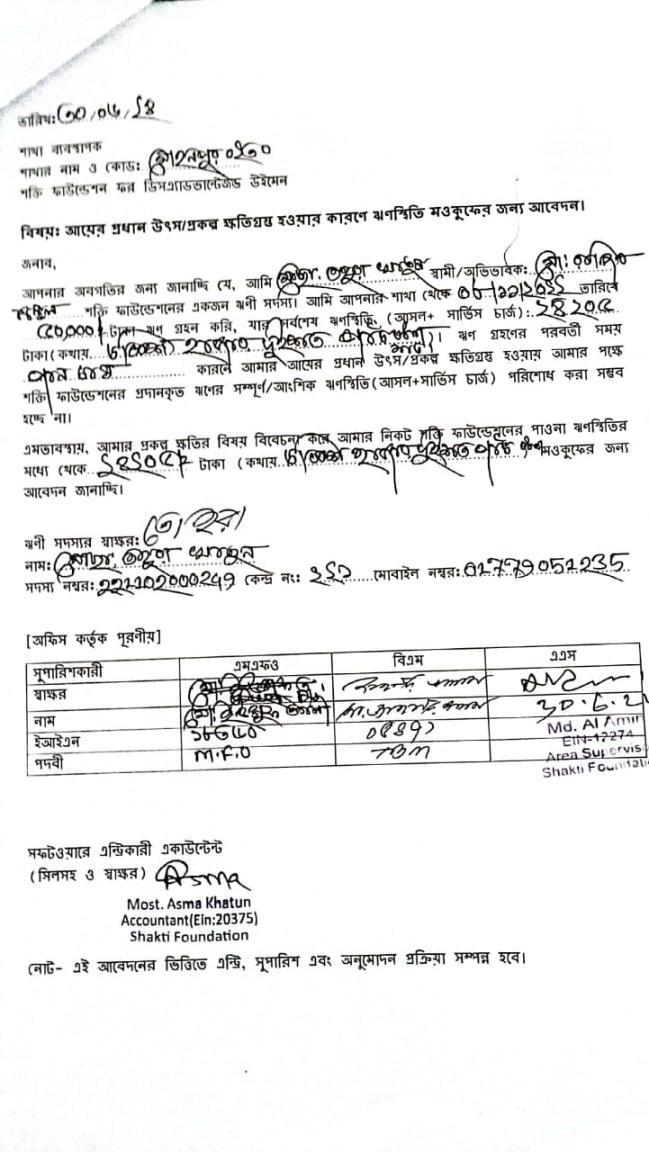 তারিখঃ ৩০/০৬/২৪
শাখা ব্যবস্থাপক
শাখার নাম ও কোডঃ
শক্তি ফাউন্ডেশন ফর ডিসএ্যাডভান্টেজড উইমেন
বিষয়ঃ আয়ের প্রধান উৎস/প্রকল্প ক্ষতিগ্রস্ত হওয়ার কারণে ঋণস্থিতি মওকুফের জন্য আবেদন।
জনাব,
আপনার অবগতির জন্য জানাচ্ছি যে, আমি মোছাঃ তহুরা খাতুন স্বামী/অভিভাবকঃ মোঃ
শক্তি ফাউন্ডেশনের একজন ঋণী সদস্য। আমি আপনার শাখা থেকে তারিখে
৫০,০০০/- টাকা ঋণ গ্রহন করি, যার সর্বশেষ ঋণস্থিতি, (আসল+ সার্ভিস চার্জ)ঃ ২৪২০৫
টাকা (কথায় হাজার দুইশত পাঁচ টাকা মাত্র)। ঋণ গ্রহণের পরবর্তী সময়
কারনে আমার আয়ের প্রধান উৎস/প্রকল্প ক্ষতিগ্রস্ত হওয়ায় আমার পক্ষে
শক্তি ফাউন্ডেশনের প্রদানকৃত ঋণের সম্পূর্ণ/আংশিক ঋণস্থিতি(আসল+সার্ভিস চার্জ) পরিশোধ করা সম্ভব
হচ্ছে না।
এমতাবস্থায়, আমার প্রকল্প ক্ষতির বিষয় বিবেচনা করে আমার নিকট শক্তি ফাউন্ডেশনের পাওনা ঋণস্থিতির
মধ্যে থেকে টাকা (কথায় হাজার দুইশত পাঁচ মওকুফের জন্য
আবেদন জানাচ্ছি।
ঋণী সদস্যর স্বাক্ষরঃ তোহুরা
নামঃ মোছাঃ তহুরা খাতুন
সদস্য নম্বরঃ 221102000249 কেন্দ্র নংঃ মোবাইল নম্বরঃ 01779051235
[অফিস কর্তৃক পূরণীয়]
সুপারিশকারী এমএফও বিএম এএস
স্বাক্ষর
নাম 30.6.2
ইআইএন Md. Al Amin
EIN-12274
পদবী M.F.O TBM Area Supervis
Shakti Foundati
সফটওয়ারে এন্ট্রিকারী একাউন্টেন্ট
(সিলসহ ও স্বাক্ষর) Asma
Most. Asma Khatun
Accountant(Ein:20375)
Shakti Foundation
নোট- এই আবেদনের ভিত্তিতে এন্ট্রি, সুপারিশ এবং অনুমোদন প্রক্রিয়া সম্পন্ন হবে।